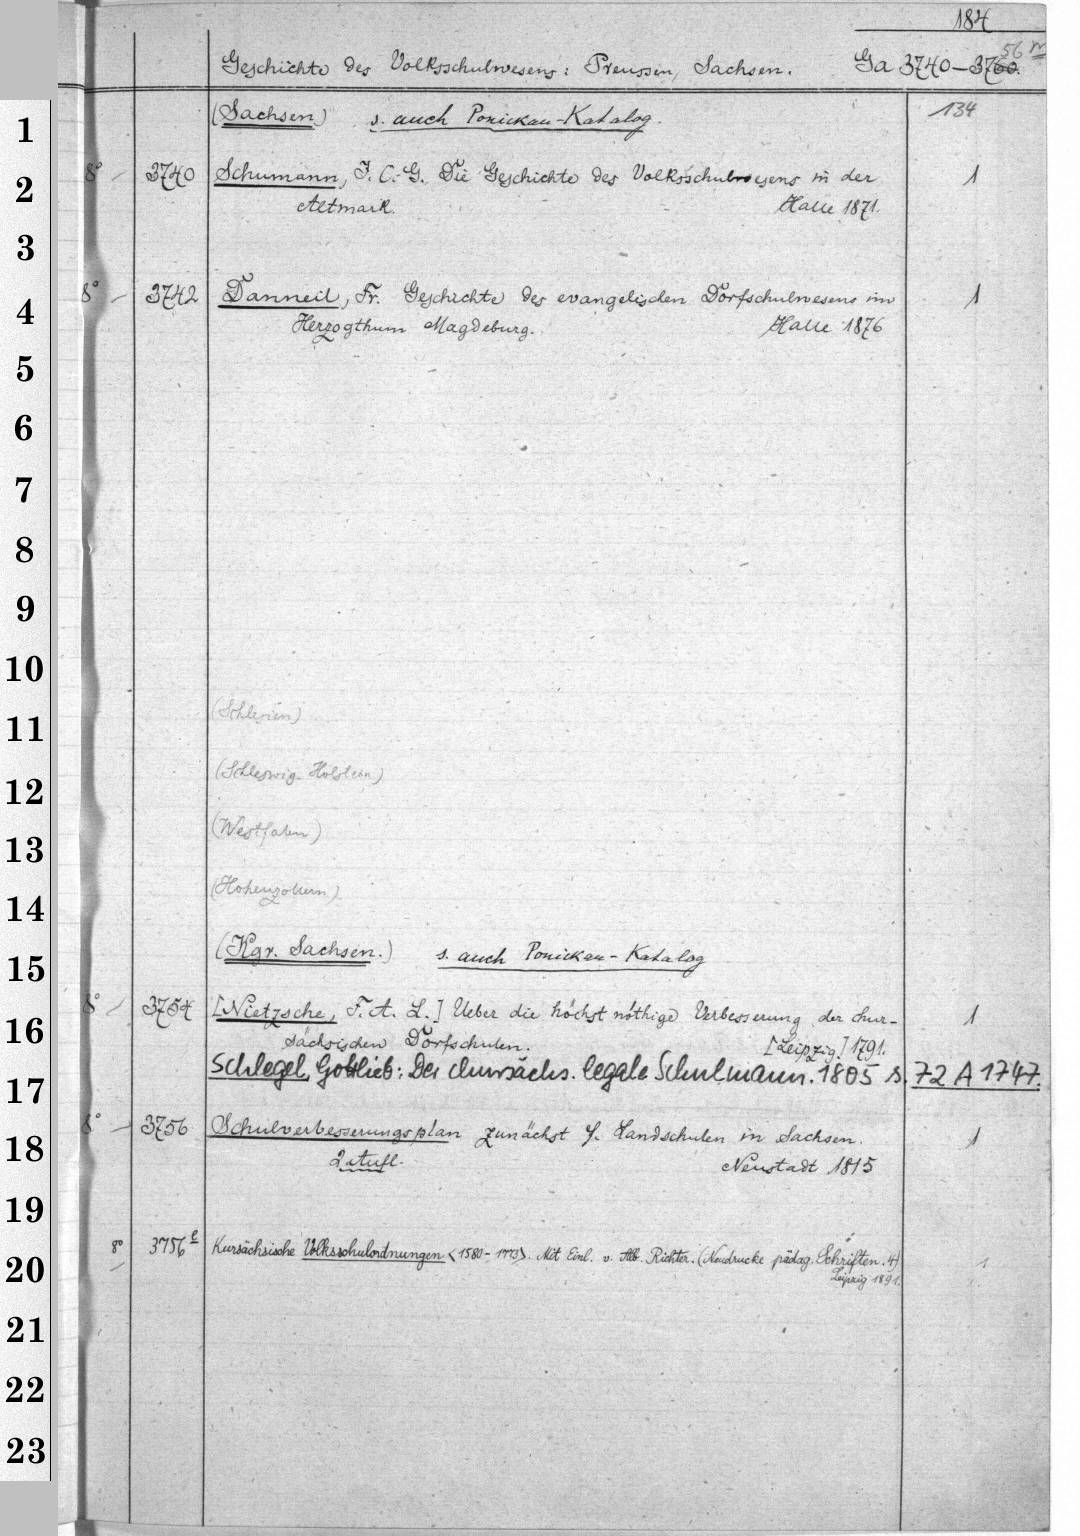 184
56 m
Geschichte des Volksschulwesens: Preussen, Sachsen. Ga 3740–3760.
1 (Sachsen) s. auch Ponickau-Katalog. 134
2 8° – 3740 Schumann, J. C. G. Die Geschichte des Volksschulwesens in der 1
Altmark. Halle 1871.
3
4 8° – 3742 Danneil, Fr. Geschichte des evangelischen Dorfschulwesens im 1
Herzogthum Magdeburg. Halle 1876
5
6
7
8
9
10
11 (Schlesien)
12 (Schleswig-Holstein)
13 (Westfalen)
14 (Hohenzollern)
15 (Kgr. Sachsen.) s. auch Ponickau-Katalog
16 8° – 3754 [Nietzsche, F. A. L.] Ueber die höchst nöthige Verbesserung der chur- 1
sächsischen Dorfschulen. [Leipzig] 1791.
17 Schlegel, Gottlieb: Der chursächs. legale Schulmann. 1805 s. 72 A 1747.
18 8° – 3756 Schulverbesserungsplan zunächst f. Landschulen in Sachsen. 1
2. Aufl. Neustadt 1815
19
20 8° – 3756 e Kursächsische Volksschulordnungen <1580-1773>. Mit Einl. v. Alb. Richter. (Neudrucke pädag. Schriften. 4) 1
Leipzig 1891.
21
22
23